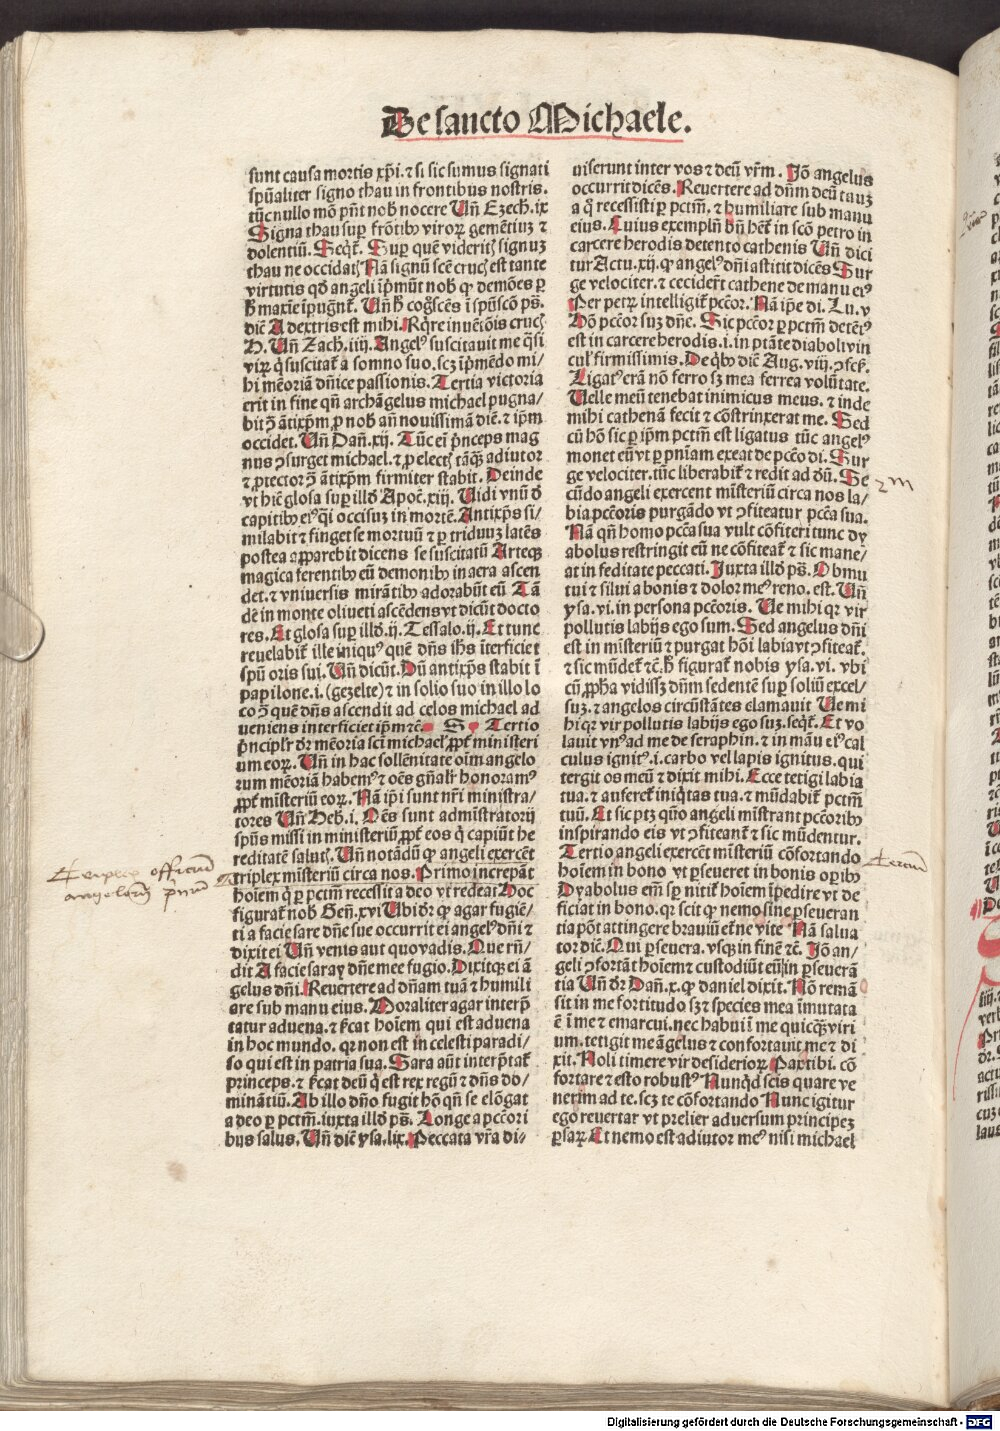 De sancto Michaele.
sunt causa mortis xp̄i. ⁊ si sic sumus signati
sp̄ualiter signo thau in frontibus nostris.
tūc nullo mō pn̄t nob̄ nocere Un̄ Ezech. ix
Signa thau sup̄ frōtib⁹ viroꝝ gemētiuꝫ ⁊
dolentiū. Seqt̄. Sup̄ quē videritꝭ signuꝫ
thau ne occidatꝭ Nā signū scē crucꝭ est tante
virtutis qd̄ angeli ip̄m ūt nob̄ qꝫ demōes ꝑ
h̄ maxie īpugnt̄. Un̄ h̄ coḡscēs ī sp̄uscō pš.
diē A dextris est mihi. Rq̄re in uēciōis crucꝭ
H. Un̄ Zach. iiij. Angel⁹ suscitauit me qͥsi
virꝝ qͥ suscitat̄ a somno suo. scꝫ īpͥmēdo mi/
hi mēoriā dn̄ice passionis. Tertia victoria
erit in fine qn̄ archāgelus michael pugna/
bit ꝯ̄ ātixp̄m ꝓ nob̄ an̄ nouissimā diē. ⁊ ip̄m
occidet. Un̄ Dan̄. xij. Tūc ei pͥnceps mag
nus ꝯsurget michael. ⁊ ꝓ electꝭ tāqꝫ adiutor
⁊ ꝓtector ꝯ̄ ātixp̄m firmiter stabit. Deinde
vt hiē glosa sup̄ illd̄ Apoc̄. xiij. Uidi vnū d̄
capitib⁹ ei⁹ qͥ occisuꝫ in mortē. Antixp̄s si/
milabit̄ ⁊ finget se mortuū ⁊ ꝑ triduuꝫ latēs
postea apparebit dicens se suscitatū Arteqꝫ
magica ferentib⁹ eū demonib⁹ in aera ascen
det. ⁊ vniuersis mirātib⁹ adorabūt eū Tā
dē in monte oliueti ascēdens vt dicūt docto
res. Et glosa sup̄ illd̄. ij. Tessalo. ij. Et tunc
reuelabit̄ ille iniqu⁹ quē dn̄s ih̄s īterficiet
spū oris sui. Un̄ dicūt. Dū antixp̄s stabit ī
papilone. i. (gezelte) ⁊ in solio suo in illo lo
co ꝯ̄ quē dn̄s ascendit ad celos michael ad
ueniens interficiet ip̄m ⁊c̄. S Tertio
pͥncipl̄r dr̄ mēoria scī michael̄ ꝓpt̄ ministeri
um eoꝝ. Un̄ in hac sollēnitate oīm angelo
rum mēoriā habem⁹ ⁊ oēs gn̄alr̄ honoram⁹
ꝓpt̄ misteriū eoꝝ. Nā ip̄i sunt nr̄i ministra/
tores Un̄ Heb̄. i. Oēs sunt admīstratorij
spūs missi in ministeriū ꝓpt̄ eos qͥ capiūt he
reditatē salutꝭ. Un̄ notādū qꝫ angeli exercēt
triplex misteriū circa nos. Primo increpāt
hoīem qͥ ꝑ pctm̄ recessit a deo vt redeat Hoc
figurat̄ nob̄ Gen̄. xvi Ubi dr̄ qꝫ agar fugiē/
ti a facie sare dn̄e sue occurrit ei angel⁹ dn̄i ⁊
dixit ei Un̄ venis aut quo vadis. Que rn̄/
dit A facie saray dn̄e mee fugio. Dixitqꝫ ei ā
gelus dn̄i. Reuertere ad dn̄am tuā ⁊ humili
are sub manu eius. Moraliter agar interp̄
tatur aduena. ⁊ sͥcat hoīem qui est aduena
in hoc mundo. qꝛ non est in celesti paradi/
so qui est in patria sua. Sara aūt interp̄tat̄
princeps. ⁊ sͥcat deū qͥ est rex regū ⁊ dn̄s do/
minātiū. Ab illo dn̄o fugit hō qn̄ se elōgat
a deo ꝑ pctm̄. iuxta illd̄ pš. Longe a pcc̄ori
bus salus. Un̄ diē ysa. lix. Peccata vr̄a di/
uiserunt inter vos ⁊ deū vr̄m. Iō angelus
occurrit dicēs. Reuertere ad dn̄m deū tuuꝫ
a qͦ recessisti ꝑ pctm̄. ⁊ humiliare sub manu
eius. Cuius exemplū bn̄ het̄ in scō petro in
carcere herodis detento cathenis Un̄ dici
tur Actu. xij. qꝫ angel⁹ dn̄i astitit dicēs Sur
ge velociter. ⁊ ceciderūt cathene de manu ei⁹
Per petrꝝ intelligit̄ pcc̄or. Nā ip̄e di. Lu. v
Hō pcc̄or suꝫ dn̄e. Sic pcc̄or ꝑ pctm̄ detēt⁹
est in carcere herodis. i. in ptāte diaboli vin
cul̄ firmissimis. De qͥb⁹ diē Aug. viij. ꝯfes̄.
Ligat⁹ erā nō ferro sꝫ mea ferrea volūtate.
Uelle meū tenebat inimicus meus. ⁊ inde
mihi cathenā fecit ⁊ cōstrinxerat me. Sed
cū hō sic ꝑ ip̄m pctm̄ est ligatus tūc angel⁹
monet eū vt ꝑ pn̄iam exeat de pcc̄o di. Sur
ge velociter. tūc liberabit̄ ⁊ redit ad dn̄. Se
cūdo angeli exercent misteriū circa nos la/
bia pcc̄oris purgādo vt ꝯfiteatur pcc̄a sua.
Nā qn̄ homo pcc̄a sua vult cōfiteri tunc dy
abolus restringit eū ne cōfiteat̄ ⁊ sic mane/
at in feditate peccati. Iuxta illd̄ pš. Obmu
tui ⁊ silui a bonis ⁊ dolor me⁹ reno. est. Un̄
ysa. vi. in persona pcc̄oris. Ue mihi qꝛ vir
pollutis labijs ego sum. Sed angelus dn̄i
est in misteriū ⁊ purgat hōi labia vt ꝯfiteat̄.
⁊ sic mūdet̄ ⁊c̄. h̄ figurat̄ nobis ysa. vi. vbi
cū ꝓpha vidissꝫ dn̄m sedentē sup̄ soliū excel/
suꝫ. ⁊ angelos circūstātes clamauit Ue mi
hi qꝛ vir pollutis labijs ego suꝫ. seqt̄. Et vo
lauit vn⁹ ad me de seraphin. ⁊ in manu ei⁹ cal
culus ignit⁹. i. carbo vel lapis ignitus. qui
tergit os meū ⁊ dixit mihi. Ecce tetigi labia
tua. ⁊ auferet̄ iniqͥtas tua. ⁊ mūdabit̄ pctm̄
tuū. Et sic ptꝫ qūo angeli mīstrant pcc̄orib⁹
inspirando eis vt ꝯfiteant̄ ⁊ sic mūdentur.
Tertio angeli exercēt misteriū cōfortando
hoīem in bono vt ꝑseueret in bonis oꝑib⁹
Dyabolus em̄ sp̄ nitit̄ hoīem īpedire vt de
ficiat in bono. qꝛ scit qꝫ nemo sine ꝑseueran
tia pōt attingere brauiū et̄ne vite Nā salua
tor diē. Qui ꝑseuera. vsqꝫ in finē ⁊c̄. Iō an/
geli ꝯfortāt hoīem ⁊ custodiūt eū in ꝑseuerā
tia Un̄ dr̄ Dan̄. x. qꝫ daniel dixit. Nō remā
sit in me fortitudo sꝫ ⁊ species mea īmutata
ē ī me ⁊ emarcui. nec habui ī me quicqꝫ viri
um. tetigit me āgelus ⁊ confortauit me ⁊ di
xit. Noli timere vir desiderioꝝ Pax tibi. cō
fortare ⁊ esto robust⁹ Nunqͥd scis quare ve
nerim ad te. scꝫ te cōfortando Nunc igitur
ego reuertar vt prelier aduersum principeꝫ
ꝑsaꝝ. Et nemo est adiutor me⁹ nisi michael
Triplex officium
angelorum primum
2m
Tercium
Digitalisierung gefördert durch die Deutsche Forschungsgemeinschaft - DFG